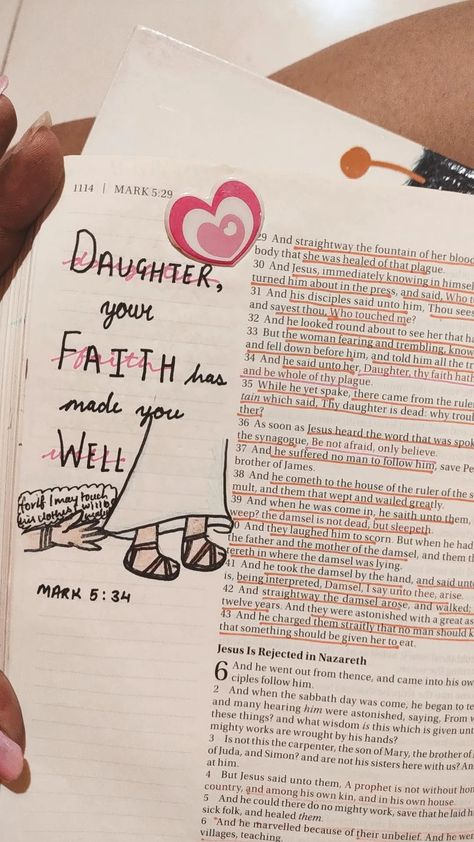 1114 | MARK 5:29
DAUGHTER,
your
FAITH has
made you
WELL
for if I may touch
his clothes I will b
MARK 5:34
29 And straightway the fountain of her blood
body that she was healed of that plague.
30 And Jesus, immediately knowing in himsel
turned him about in the press, and said, Who
31 And his disciples said unto him, Thou sees
and sayest thou, Who touched me?
32 And he looked round about to see her that ha
33 But the woman fearing and trembling, know
and fell down before him, and told him all the tr
34 And he said unto her, Daughter, thy faith hath
and be whole of thy plague.
35 While he yet spake, there came from the ruler
tain which said, Thy daughter is dead: why troul
ther?
36 As soon as Jesus heard the word that was spok
the synagogue, Be not afraid, only believe.
37 And he suffered no man to follow him, save Pe
brother of James.
38 And he cometh to the house of the ruler of the s
mult, and them that wept and wailed greatly.
39 And when he was come in, he saith unto them,
weep? the damsel is not dead, but sleepeth.
40 And they laughed him to scorn. But when he had
the father and the mother of the damsel, and them th
tereth in where the damsel was lying.
41 And he took the damsel by the hand, and said unto
is, being interpreted, Damsel, I say unto thee, arise.
42 And straightway the damsel arose, and walked;
twelve years. And they were astonished with a great as
43 And he charged them straitly that no man should k
that something should be given her to eat.
Jesus Is Rejected in Nazareth
6 And he went out from thence, and came into his ow
ciples follow him.
2 And when the sabbath day was come, he began to te
and many hearing him were astonished, saying, From w
these things? and what wisdom is this which is given unt
mighty works are wrought by his hands?
3 Is not this the carpenter, the son of Mary, the brother of
of Juda, and Simon? and are not his sisters here with us? An
at him.
4 But Jesus said unto them, A prophet is not without hon
country, and among his own kin, and in his own house.
5 And he could there do no mighty work, save that he laid h
sick folk, and healed them.
6 And he marvelled because of their unbelief. And he went
villages, teaching.